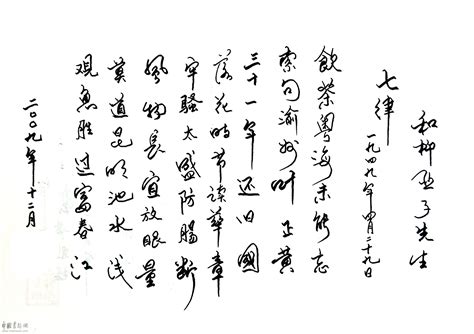 和柳亚子先生
七律
一九四九年四月二十九日
飲茶粤海未能忘
索句渝州叶正黄
三十一年还旧國
落花时节读華章
牢騷太盛防腸断
風物長宜放眼量
莫道昆明池水浅
观魚胜过富春江
二〇〇九年十二月